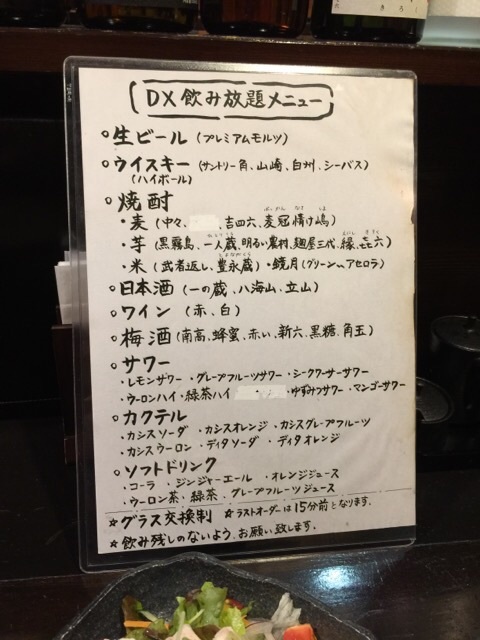 DX飲み放題メニュー
○生ビール(プレミアムモルツ)
○ウイスキー(サントリー角、山崎、白州、シーバス)
(ハイボール)
○焼酎
・麦(中々、吉四六、麦冠情け嶋)
・芋(黒霧島、一人蔵、明るい農村、麹屋三代、縁、㐂六)
・米(武者返し、豊永蔵)・鏡月(グリーン、アセロラ)
○日本酒(一の蔵、八海山、立山)
○ワイン(赤、白)
○梅酒(南高、蜂蜜、赤い、新六、黒糖、角玉)
○サワー
・レモンサワー・グレープフルーツサワー・シークワーサーサワー
・ウーロンハイ・緑茶ハイ・ゆずみつサワー・マンゴーサワー
○カクテル
・カシスソーダ・カシスオレンジ・カシスグレープフルーツ
・カシスウーロン・ディタソーダ・ディタオレンジ
○ソフトドリンク
・コーラ・ジンジャーエール・オレンジジュース
・ウーロン茶・緑茶・グレープフルーツジュース
☆グラス交換制 ☆ラストオーダーは15分前となります。
☆飲み残しのないよう、お願い致します。